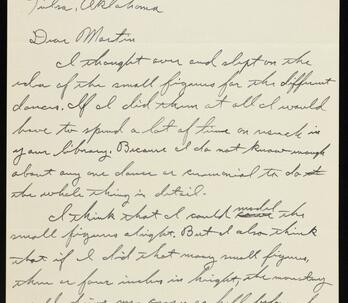 Tulsa, Oklahoma
Dear Martin
I thought over and slept on the
idea of the small figures for the different
dances. If I did them at all I would
have to spend a lot of time on reseach in
your library. Because I do not know enough
about any one dance or ceremonial to do
the whole thing in detail.
I think that I could model the
small figures alright. But I also think
that if I did that many small figures,
three or four inches in height, the monotony